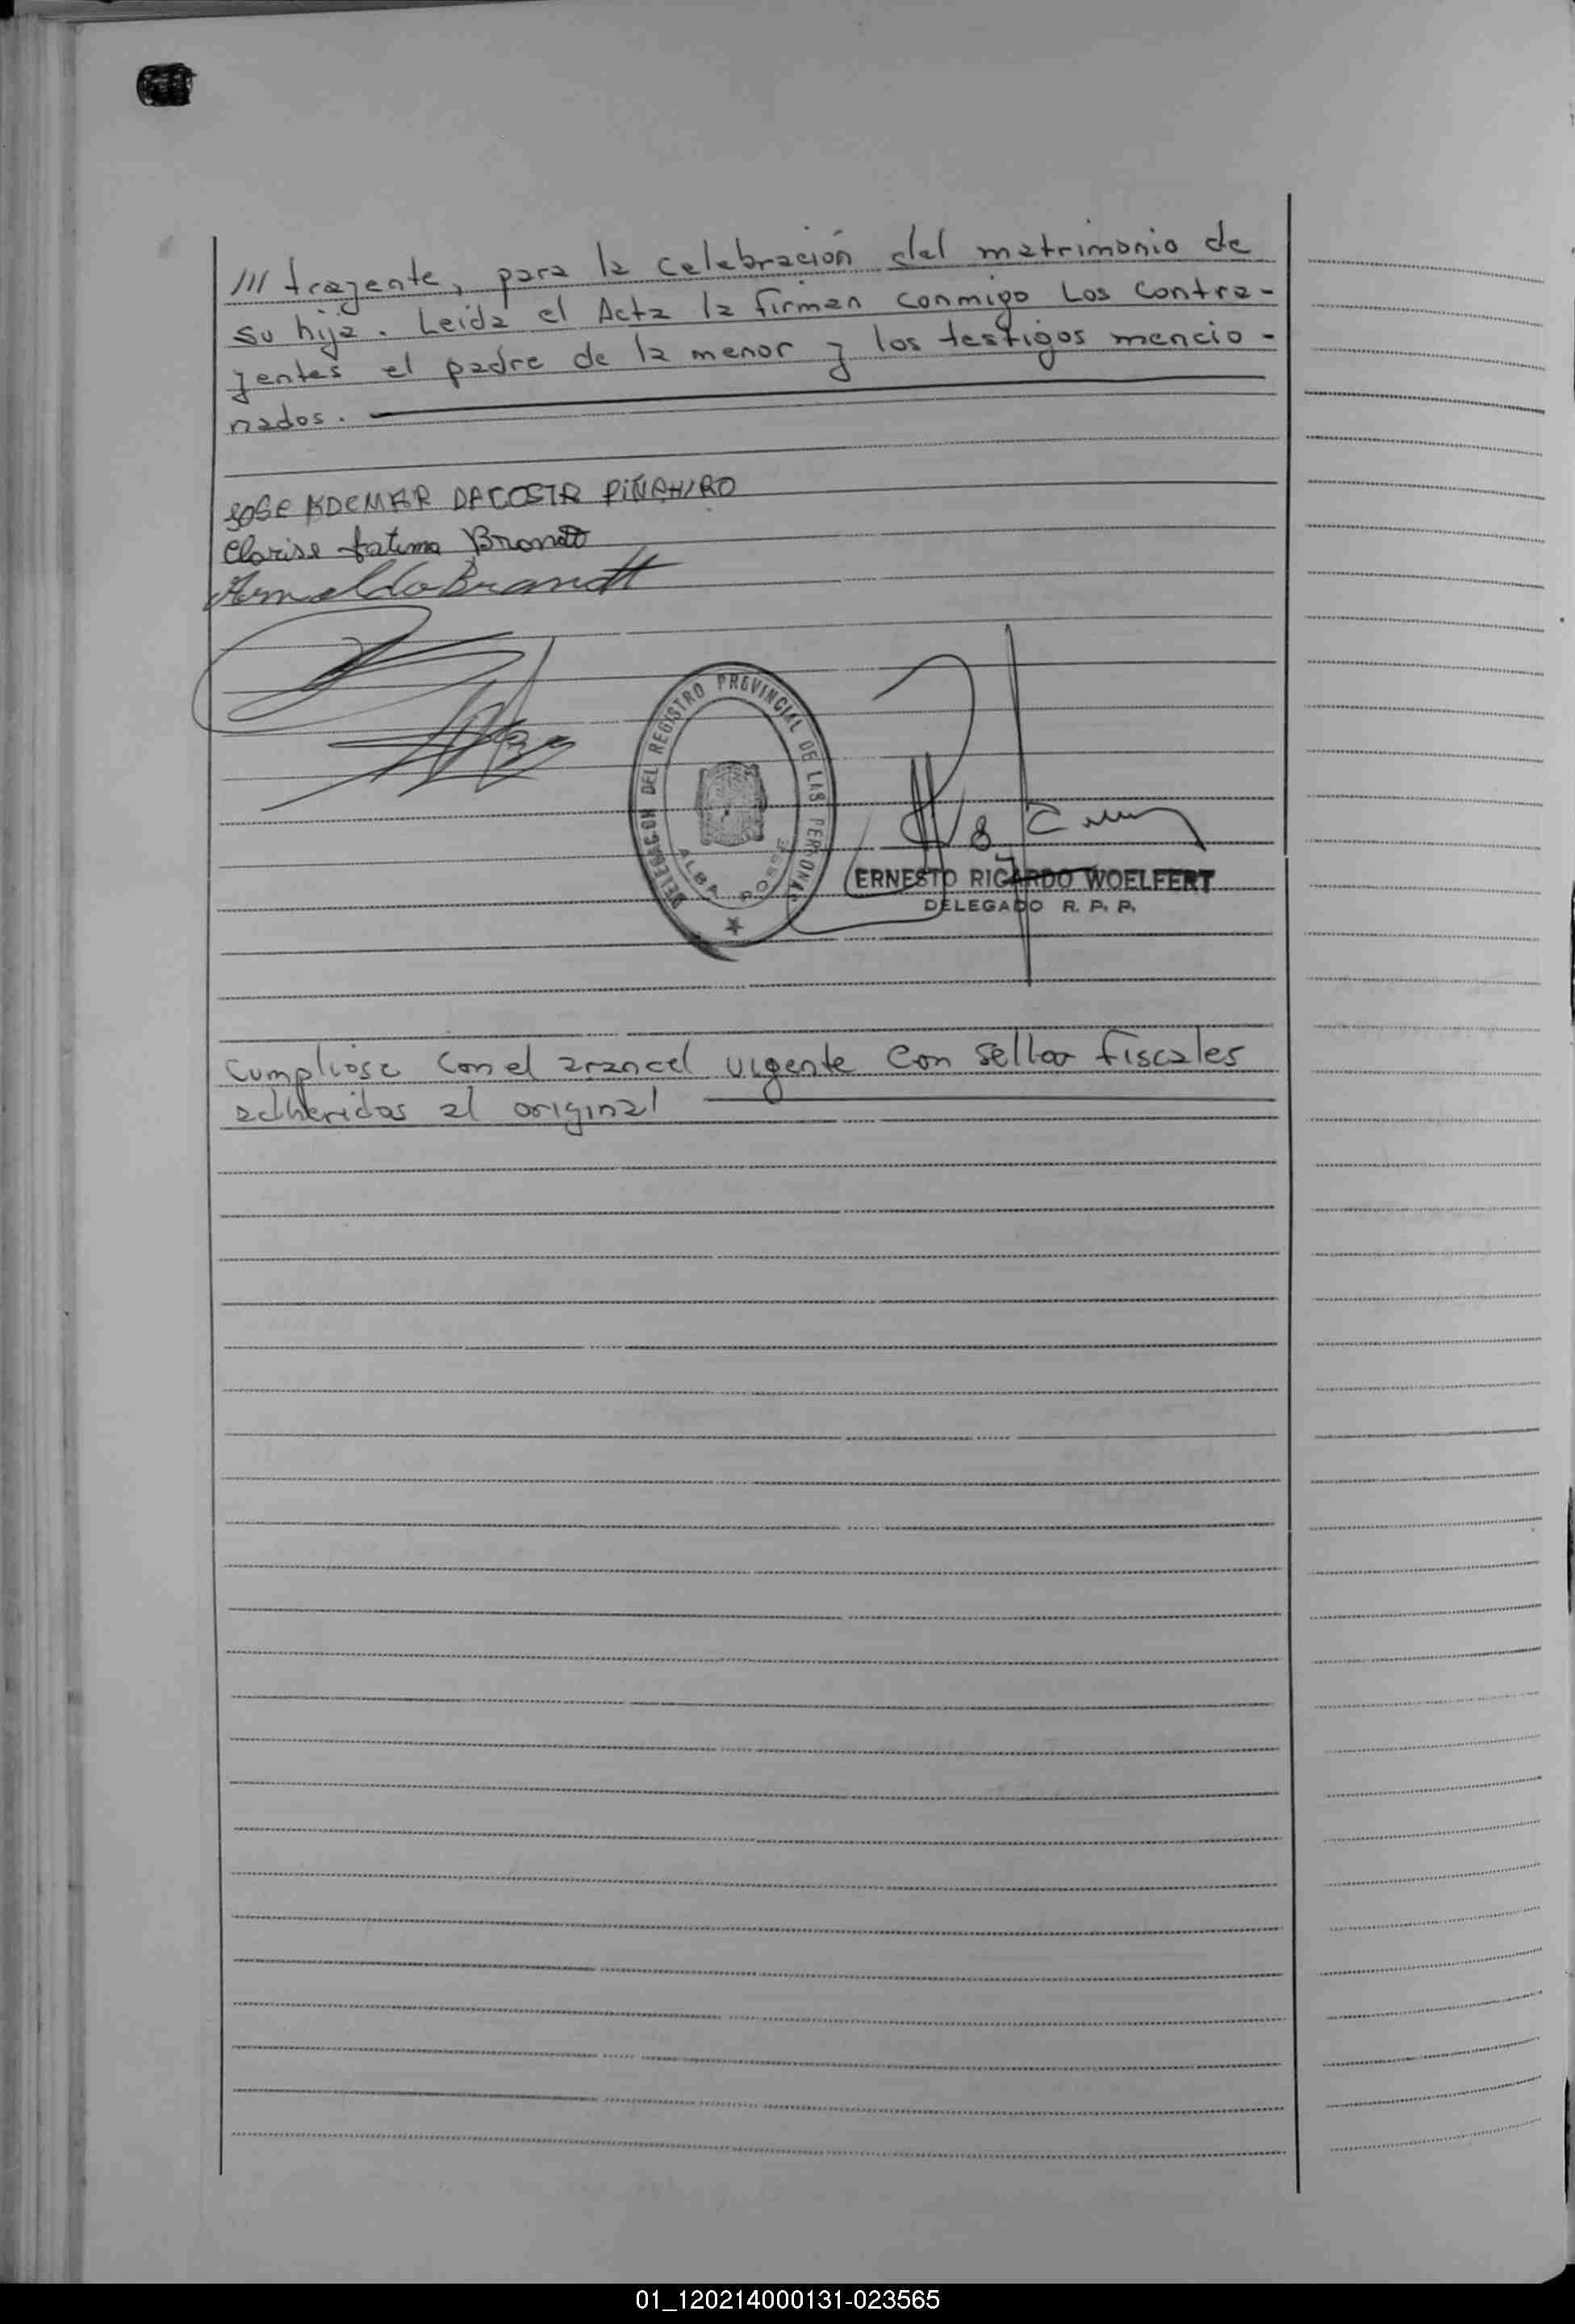 /// trayente, para la celebración del matrimonio de
su hija. Leida el Acta la firman conmigo Los contra-
yentes el padre de la menor y los testigos mencio-
nados.
JOSE ADEMAR DACOSTA PIÑAHIRO
Clarise fatima Brandt
Arnaldo Brandt
DELEGACION DEL REGISTRO PROVINCIAL DE LAS PERSONAS
ALBA POSSE
ERNESTO RICARDO WOELFERT
DELEGADO R. P. P.
Cumpliose con el arancel vigente con sellos fiscales
adheridos al original
01_120214000131-023565